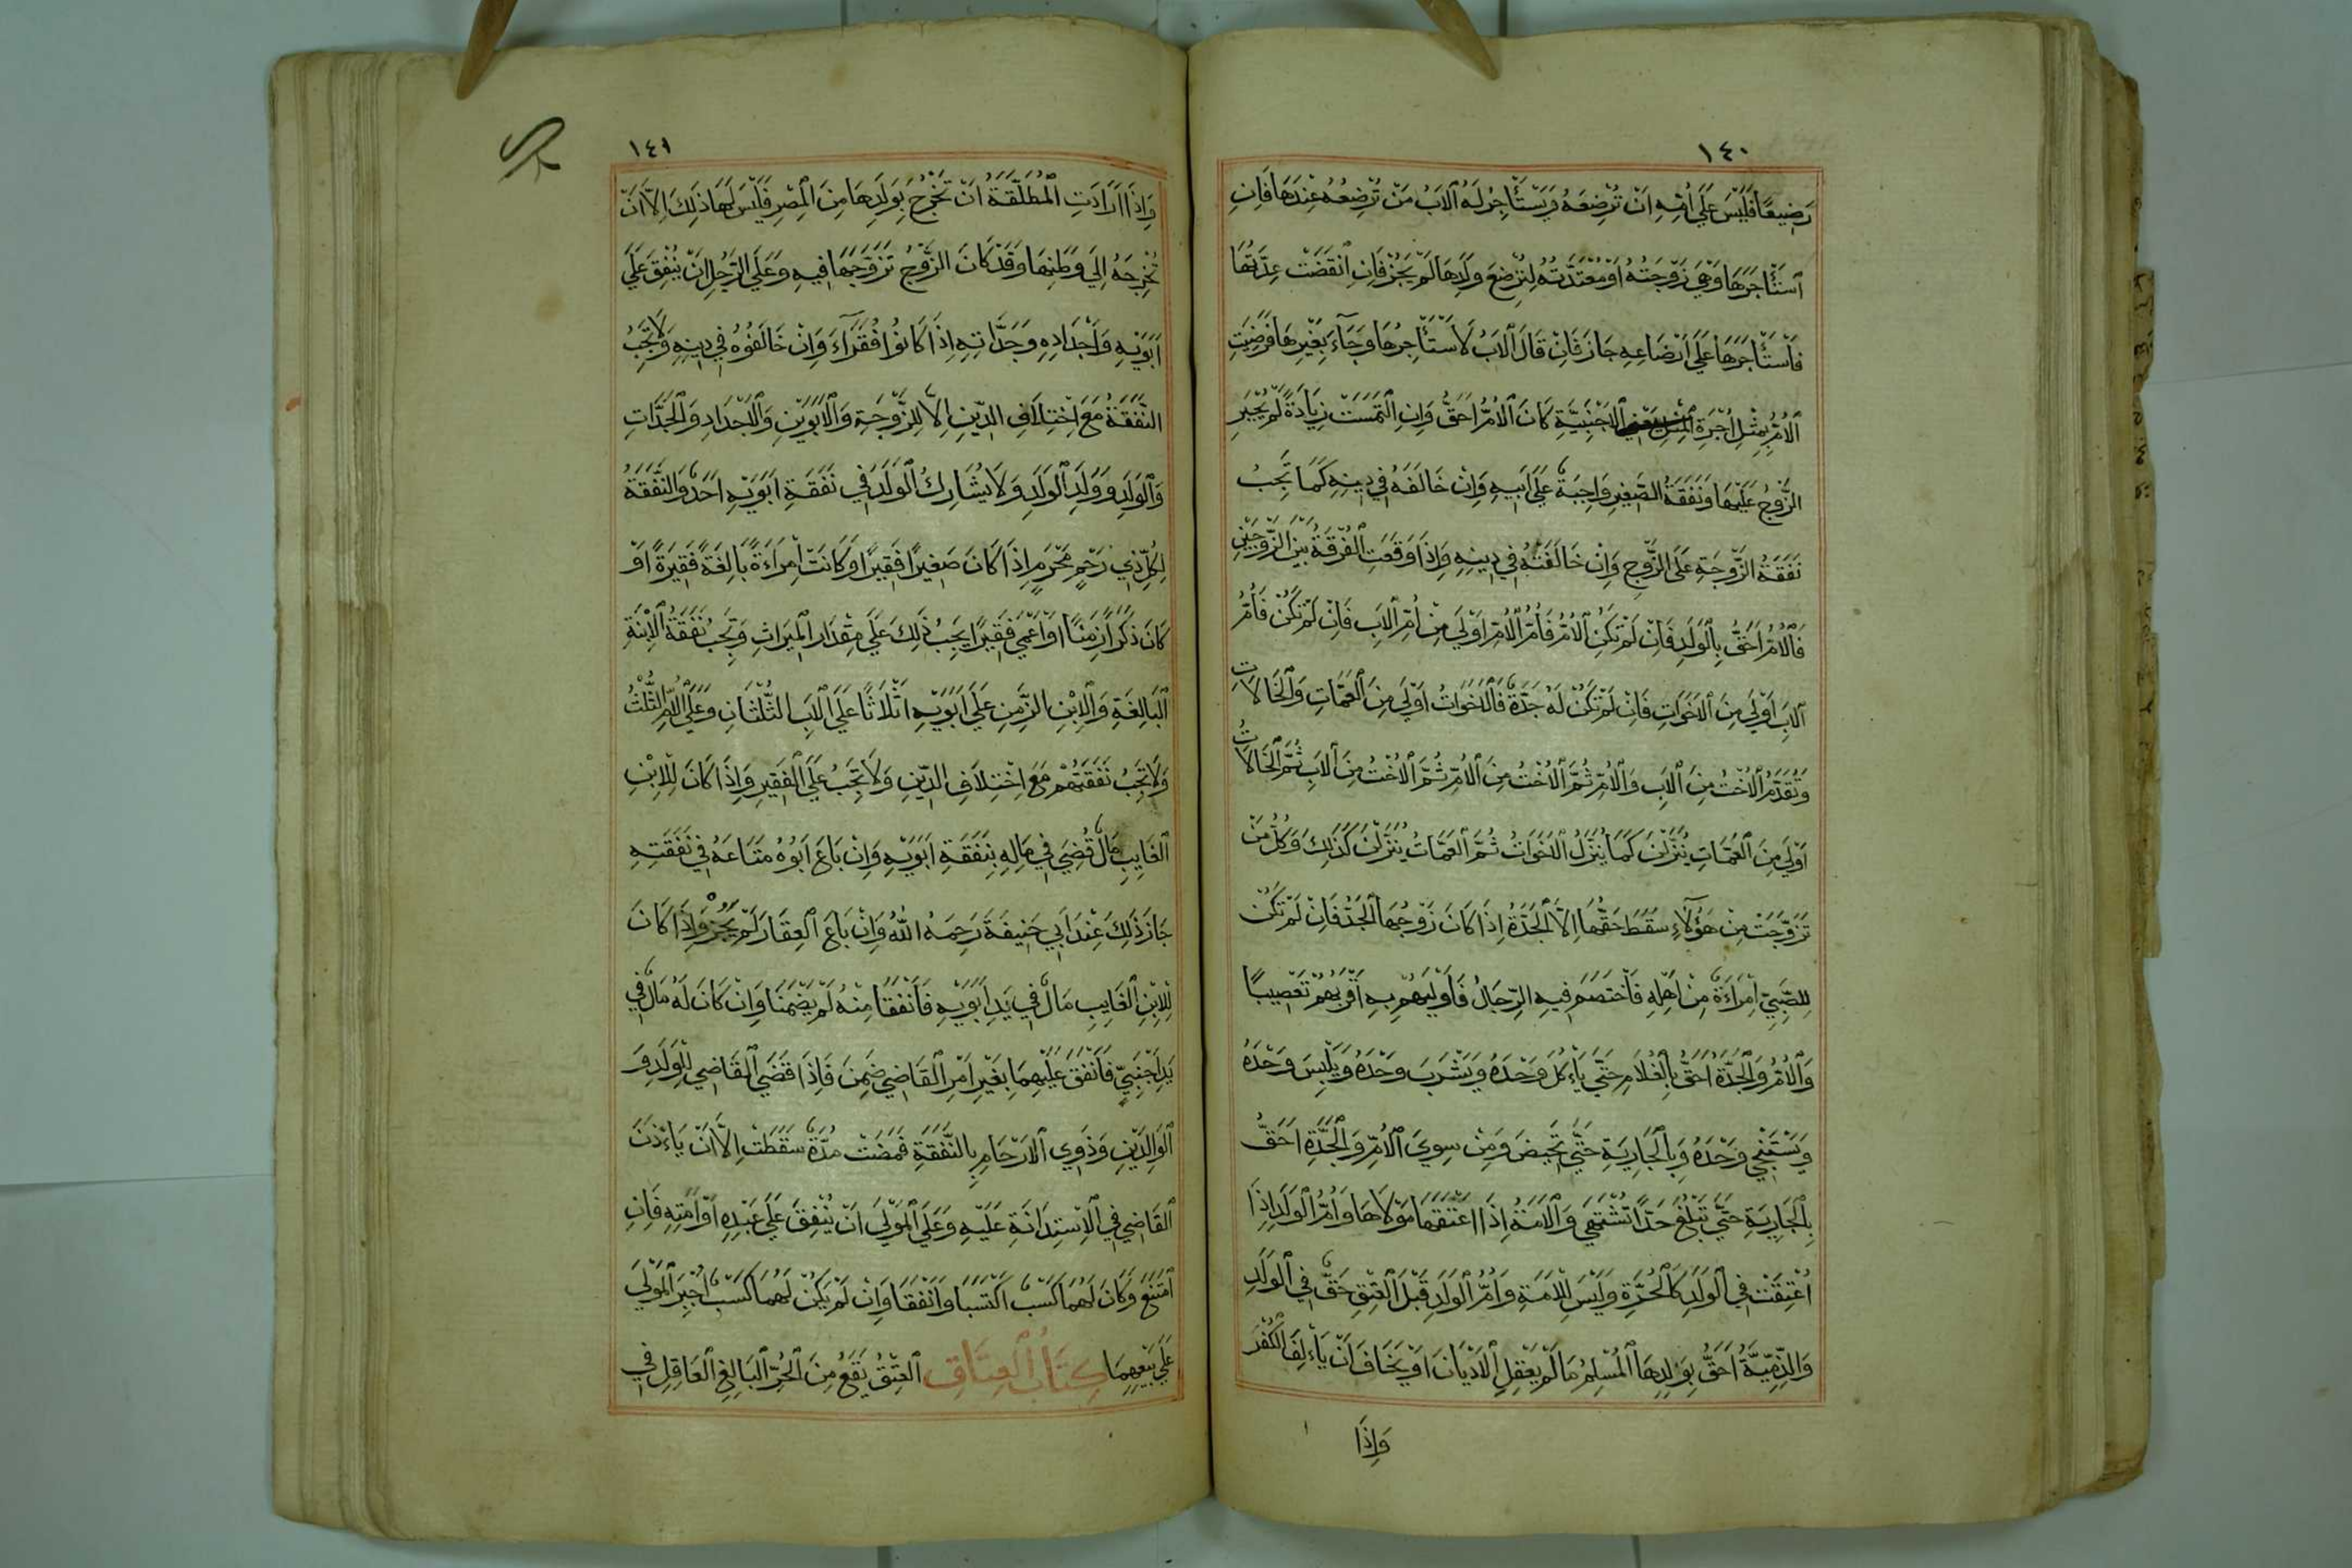 ١٤٠
رَضِيعًا فَلَيْسَ عَلَى أُمِّهِ اَنْ تُرْضِعَهُ وَيَسْتَأْجِرُ لَهُ الْاَبُ مَنْ تُرْضِعُهُ عِنْدَهَا فَاِنِ
اسْتَأْجَرَهَا وَهِيَ زَوْجَتُهُ اَوْ مُعْتَدَّتُهُ لِتُرْضِعَ وَلَدَهَا لَمْ يَجُزْ فَاِنِ انْقَضَتْ عِدَّتُهَا
فَاسْتَأْجَرَهَا عَلَى اِرْضَاعِهِ جَازَ فَاِنْ قَالَ الْاَبُ لَا اَسْتَأْجِرُهَا وَجَآءَ بِغَيْرِهَا فَرَضِيَتِ
الْاُمُّ بِمِثْلِ اُجْرَةِ الْاَجْنَبِيَّةِ كَانَ الْاُمُّ اَحَقُّ وَاِنِ الْتَمَسَتْ زِيَادَةً لَمْ يُجْبَرِ
الزَّوْجُ عَلَيْهَا وَنَفَقَةُ الصَّغِيرِ وَاجِبَةٌ عَلَى اَبِيهِ وَاِنْ خَالَفَهُ فِي دِينِهِ كَمَا تَجِبُ
نَفَقَةُ الزَّوْجَةِ عَلَى الزَّوْجِ وَاِنْ خَالَفَتْهُ فِي دِينِهِ وَاِذَا وَقَعَتِ الْفُرْقَةُ بَيْنَ الزَّوْجَيْنِ
فَالْاُمُّ اَحَقُّ بِالْوَلَدِ فَاِنْ لَمْ تَكُنِ الْاُمُّ فَاُمُّ الْاُمِّ اَوْلَى مِنْ اُمِّ الْاَبِ فَاِنْ لَمْ تَكُنْ فَاُمُّ
الْاَبِ اَوْلَى مِنَ الْاَخَوَاتِ فَاِنْ لَمْ تَكُنْ لَهُ جَدَّةٌ فَالْاَخَوَاتُ اَوْلَى مِنَ الْعَمَّاتِ وَالْخَالَاتِ
وَتُقَدَّمُ الْاُخْتُ مِنَ الْاَبِ وَالْاُمِّ ثُمَّ الْاُخْتُ مِنَ الْاُمِّ ثُمَّ الْاُخْتُ مِنَ الْاَبِ ثُمَّ الْخَالَاتُ
اَوْلَى مِنَ الْعَمَّاتِ يُنَزَّلْنَ كَمَا يُنَزَّلُ الْاَخَوَاتُ ثُمَّ الْعَمَّاتُ يُنَزَّلْنَ كَذَلِكَ وَكُلُّ مَنْ
تَزَوَّجَتْ مِنْ هَؤُلَآءِ سَقَطَ حَقُّهَا اِلَّا الْجَدَّةُ اِذَا كَانَ زَوْجُهَا الْجَدُّ فَاِنْ لَمْ تَكُنْ
لِلصَّبِيِّ اِمْرَاَةٌ مِنْ اَهْلِهِ فَاخْتَصَمَ فِيهِ الرِّجَالُ فَاَوْلَيهُمْ بِهِ اَقْرَبُهُمْ تَعْصِيبًا
وَالْاُمُّ وَالْجَدَّةُ اَحَقُّ بِالْغُلَامِ حَتَّى يَأْكُلَ وَحْدَهُ وَيَشْرَبَ وَحْدَهُ وَيَلْبِسَ وَحْدَهُ
وَيَسْتَنْجِي وَحْدَهُ وَبِالْجَارِيَةِ حَتَّى تَحِيضَ وَمِنْ سِوَى الْاُمِّ وَالْجَدَّةِ اَحَقُّ
بِالْجَارِيَةِ حَتَّى تَبْلُغَ حَدًّا تُشْتَهَى وَالْاَمَةُ اِذَا اَعْتَقَهَا مَوْلَاهَا وَاُمُّ الْوَلَدِ اِذَا
اُعْتِقَتْ فِي الْوَلَدِ كَالْحُرَّةِ وَلَيْسَ لِلْاَمَةِ وَاُمِّ الْوَلَدِ قَبْلَ الْعِتْقِ حَقٌّ فِي الْوَلَدِ
وَالذِّمِّيَّةُ اَحَقُّ بِوَلَدِهَا الْمُسْلِمُ مَا لَمْ يَعْقِلِ الْاَدْيَانَ اَوْ يَخَافَ اَنْ يَأْلِفَ الْكُفْرَ
وَاِذَا
١٤١
وَاِذَا اَرَادَتِ الْمُطَلَّقَةُ اَنْ تَخْرُجَ بِوَلَدِهَا مِنَ الْمِصْرِ فَلَيْسَ لَهَا ذَلِكَ اِلَّا اَنْ
تُخْرِجَهُ اِلَى وَطَنِهَا وَقَدْ كَانَ الزَّوْجُ تَزَوَّجَهَا فِيهِ وَعَلَى الرَّجُلِ اَنْ يُنْفِقَ عَلَى
اَبَوَيْهِ وَاَجْدَادِهِ وَجَدَّاتِهِ اِذَا كَانُوا فُقَرَآءَ وَاِنْ خَالَفُوهُ فِي دِينِهِ وَلَا تَجِبُ
النَّفَقَةُ مَعَ اخْتِلَافِ الدِّينِ اِلَّا لِلزَّوْجَةِ وَالْاَبَوَيْنِ وَالْاَجْدَادِ وَالْجَدَّاتِ
وَالْوَلَدِ وَوَلَدِ الْوَلَدِ وَلَا يُشَارِكُ الْوَلَدَ فِي نَفَقَةِ اَبَوَيْهِ اَحَدٌ وَالنَّفَقَةُ
لِكُلِّ ذِي رَحِمٍ مَحْرَمٍ اِذَا كَانَ صَغِيرًا فَقِيرًا اَوْ كَانَتْ اِمْرَاَةً بَالِغَةً فَقِيرَةً اَوْ
كَانَ ذَكَرًا زَمِنًا اَوْ اَعْمَى فَقِيرًا يَجِبُ ذَلِكَ عَلَى مِقْدَارِ الْمِيرَاثِ وَتَجِبُ نَفَقَةُ الْاِبْنَةِ
الْبَالِغَةِ وَالْاِبْنِ الزَّمِنِ عَلَى اَبَوَيْهِ اَثْلَاثًا عَلَى الْاَبِ الثُّلُثَانِ وَعَلَى الْاُمِّ الثُّلُثُ
وَلَا تَجِبُ نَفَقَتُهُمْ مَعَ اخْتِلَافِ الدِّينِ وَلَا تَجِبُ عَلَى الْفَقِيرِ وَاِذَا كَانَ لِلْاِبْنِ
الْغَايِبِ مَالٌ قُضِيَ فِي مَالِهِ بِنَفَقَةِ اَبَوَيْهِ وَاِنْ بَاعَ اَبُوهُ مَتَاعَهُ فِي نَفَقَتِهِ
جَازَ ذَلِكَ عِنْدَ اَبِي حَنِيفَةَ رَحِمَهُ اللهُ وَاِنْ بَاعَ الْعِقَارَ لَمْ يَجُزْ وَاِذَا كَانَ
لِلْاِبْنِ الْغَايِبِ مَالٌ فِي يَدِ اَبَوَيْهِ فَاَنْفَقَا مِنْهُ لَمْ يَضْمَنَا وَاِنْ كَانَ لَهُ مَالٌ فِي
يَدِ اَجْنَبِيٍّ فَاَنْفَقَ عَلَيْهِمَا بِغَيْرِ اَمْرِ الْقَاضِي ضَمِنَ فَاِذَا قَضَى الْقَاضِي لِلْوَلَدِ وَ
الْوَالِدَيْنِ وَذَوِي الْاَرْحَامِ بِالنَّفَقَةِ فَمَضَتْ مُدَّةٌ سَقَطَتْ اِلَّا اَنْ يَأْذَنَ
الْقَاضِي فِي الْاِسْتِدَانَةِ عَلَيْهِ وَعَلَى الْمَوْلَى اَنْ يُنْفِقَ عَلَى عَبْدِهِ اَوْ اَمَتِهِ فَاِنِ
امْتَنَعَ وَكَانَ لَهُمَا كَسْبٌ اكْتَسَبَا وَاَنْفَقَا وَاِنْ لَمْ يَكُنْ لَهُمَا كَسْبٌ اُجْبِرَ الْمَوْلَى
عَلَى بَيْعِهِمَا كِتَابُ الْعِتَاقِ الْعِتْقُ يَقَعُ مِنَ الْحُرِّ الْبَالِغِ الْعَاقِلِ فِي